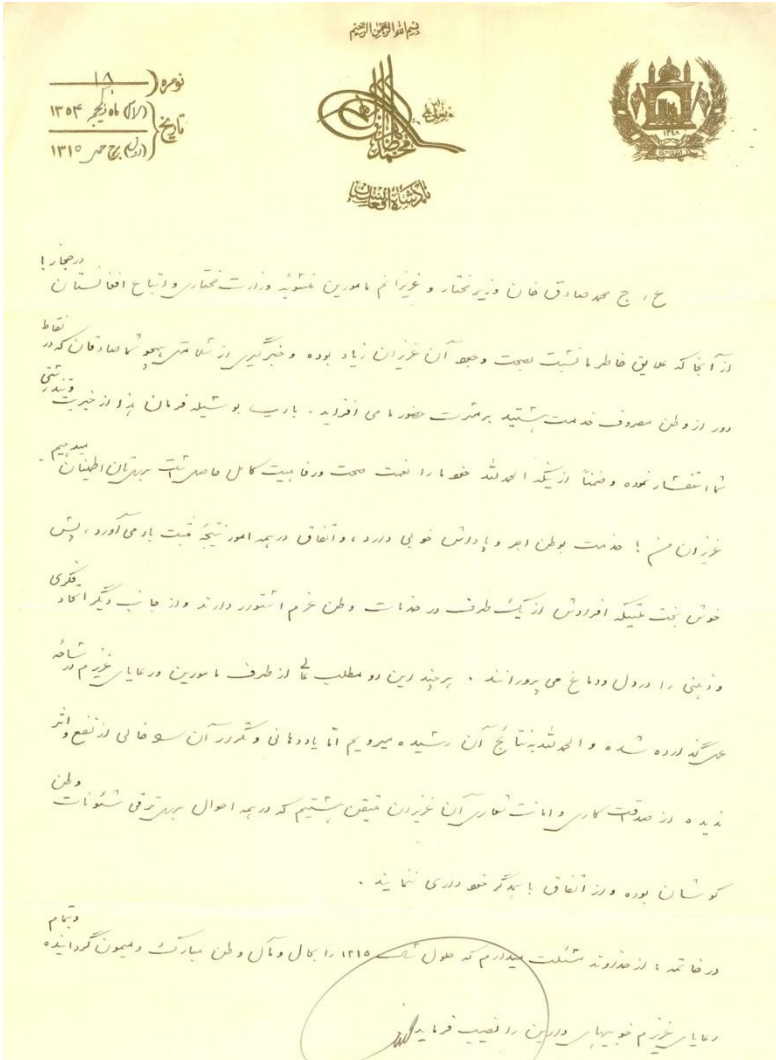 بسم الله الرحمن الرحیم
نومره ۱۸
تاریخ
۱۳۵۴
۱۳۱۵
محمد ظاهر
پادشاه افغانستان
۱۳۴۸
ع، ج محمد صادق خان وزیر مختار و عزیزانم مامورین وزارت مختاری و اتباع افغانستان در حجاز!
از آنجا که علایق خاطر ما نسبت بصحت وجود آن عزیزان زیاد بوده و خبرگیری از سلامتی همچو شما صادقان که در نقاط
دور از وطن مصروف خدمت هستید بر مسرت حضور ما می افزاید. بوسیله فرمان هذا از خیریت و تندرستی
شما استفسار نموده و ضمناً از اینکه الحمدلله خود ما را نعمت صحت و رفاهیت کامل حاصل است برای تان اطمینان میدهیم.
عزیزان من! خدمت بوطن اجر و پاداش خوبی دارد، و اتفاق در همه امور نتیجهٔ مثبت بار می آورد، پس
خوش بخت ملتیکه افرادش از یک طرف در خدمات وطن عزم استوار دارند و از جانب دیگر اتحاد فکری
و ذهنی را در دل و دماغ می پرورانند. هرچند این دو مطلب عالی از طرف مامورین و رعایای عزیزم در ساحه
عمل گذارده شده و الحمدلله به نتائج آن رسیده میرویم اما یاددهانی و تکرار آن را خالی از نفع و اثر
ندیده از صداقت کاری و امانت شعاری آن عزیزان متیقن هستیم که در همه احوال برای ترقی شئونات وطن
کوشان بوده و از اتفاق با همدگر خودداری ننمایند.
در خاتمه: از خداوند مسئلت میدارم که حلول سال ۱۳۱۵ را بحال و مآل وطن مبارک و میمون گردانیده و بتمام
رعایای عزیزم خوبیهای دارین را نصیب فرماید